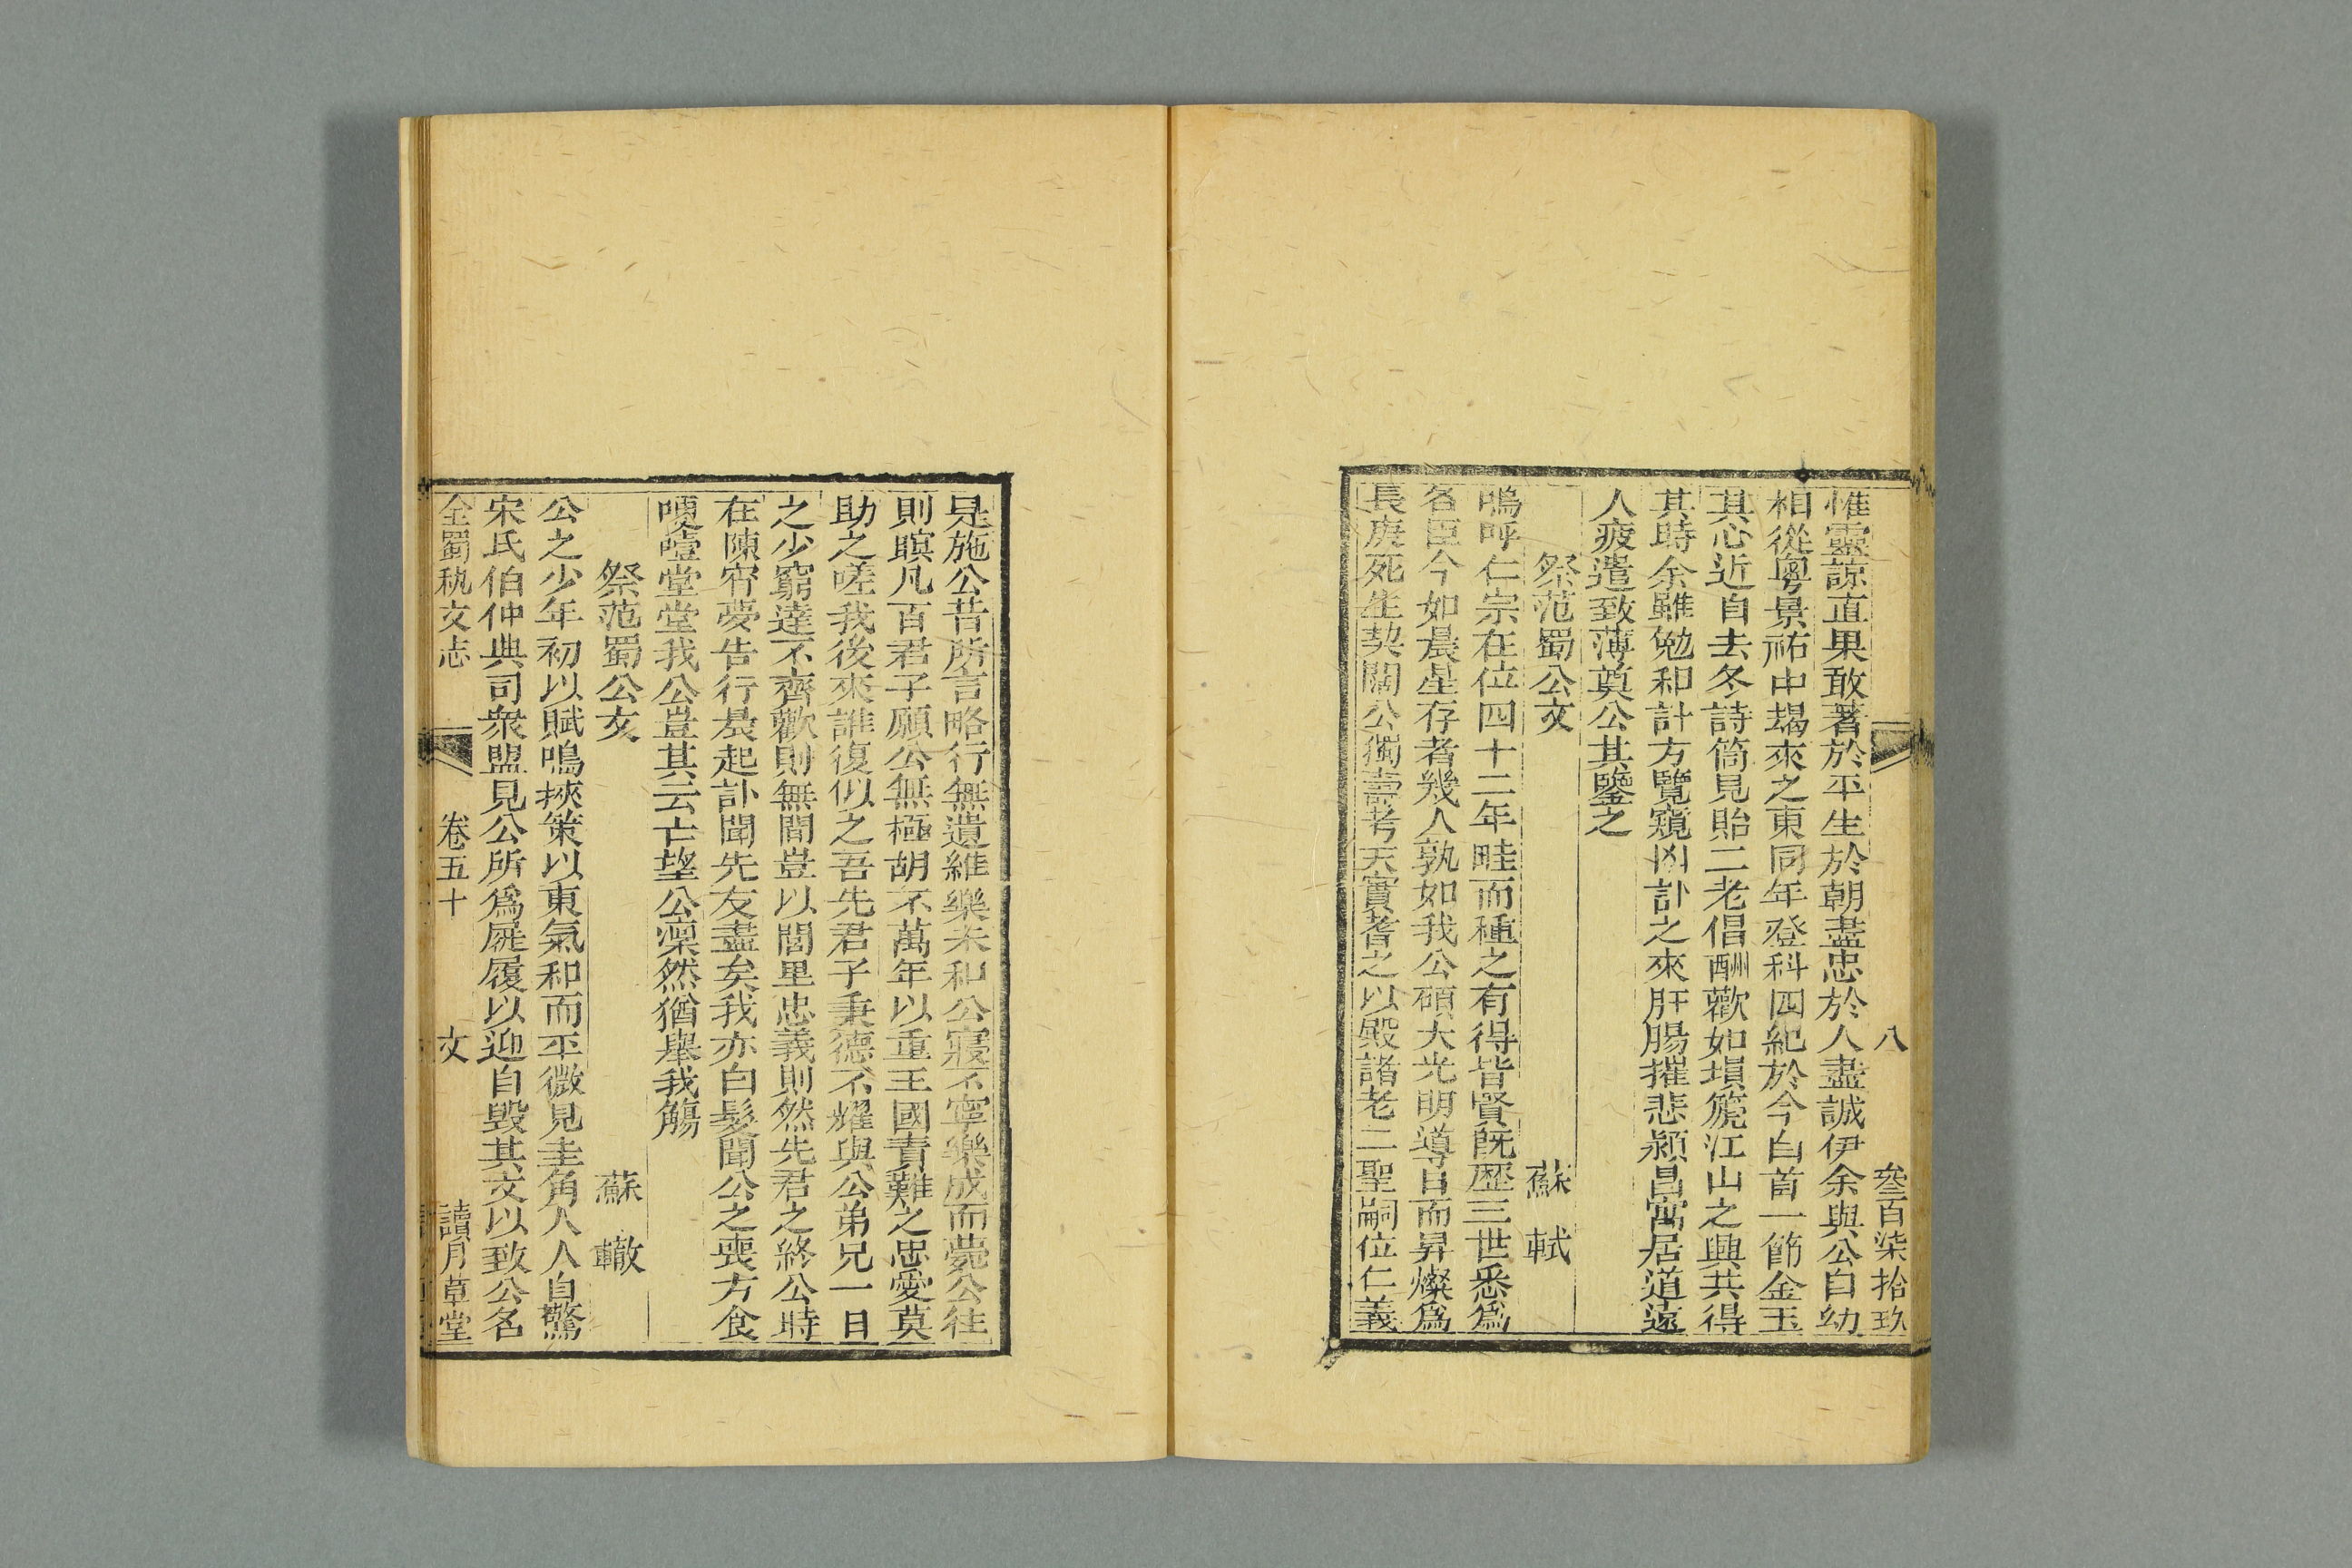 八 叁百柒拾玖
惟靈諒直果敢著於平生於朝盡忠於人盡誠伊余與公自幼
相從粵景祐中朅來之東同年登科四紀於今白首一節金玉
其心近自去冬詩筒見貽二老倡酬歡如塤篪江山之興共得
其時余雖勉和計方覽窺凶訃之來肝腸摧悲潁昌寓居道遠
人疲遣致薄奠公其鑒之
祭范蜀公文 蘇軾
嗚呼仁宗在位四十二年畦而種之有得皆賢旣歷三世悉爲
名臣今如晨星存者幾人孰如我公碩大光明導日而昇燦爲
長庚死生契闊公獨壽考天實耆之以殿諸老二聖嗣位仁義
是施公昔所言略行無遺維樂未和公寢不寧樂成而薨公往
則瞑凡百君子願公無極胡不萬年以重王國責難之忠愛莫
助之嗟我後來誰復似之吾先君子秉德不耀與公弟兄一日
之少窮達不齊歡則無間豈以閭里忠義則然先君之終公時
在陳宵夢告行晨起訃聞先友盡矣我亦白髮聞公之喪方食
哽噎堂堂我公豈其云亡望公凜然猶舉我觴
祭范蜀公文 蘇轍
公之少年初以賦鳴挾策以東氣和而平微見圭角人人自驚
宋氏伯仲典司衆盟見公所爲屣履以迎自毀其文以致公名
全蜀秇文志 卷五十 文 讀月草堂